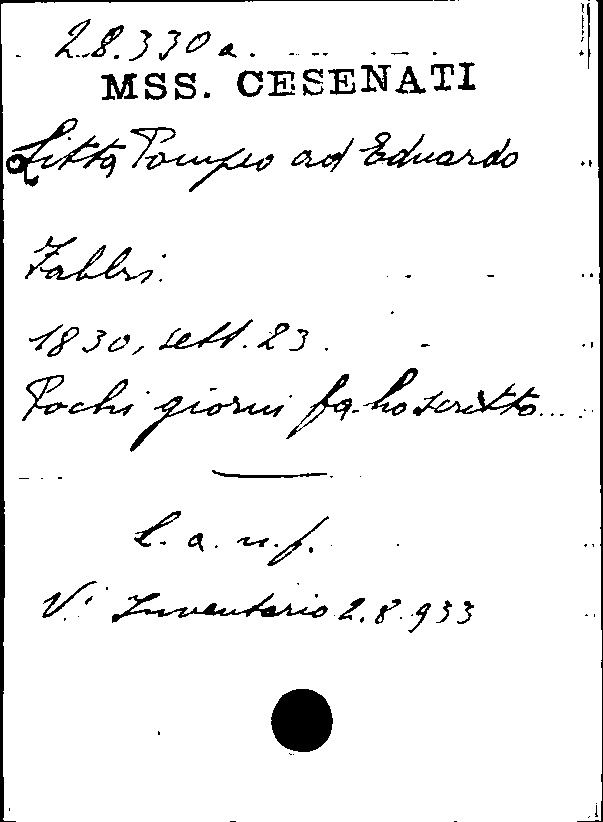 28.330 a.
MSS. CESENATI
Litta Pompeo ad Eduardo
Fabbri.
1830, sett. 23.
Pochi giorni fa ho scritto...
l. a. n. f.
V. Inventario 2.8.933